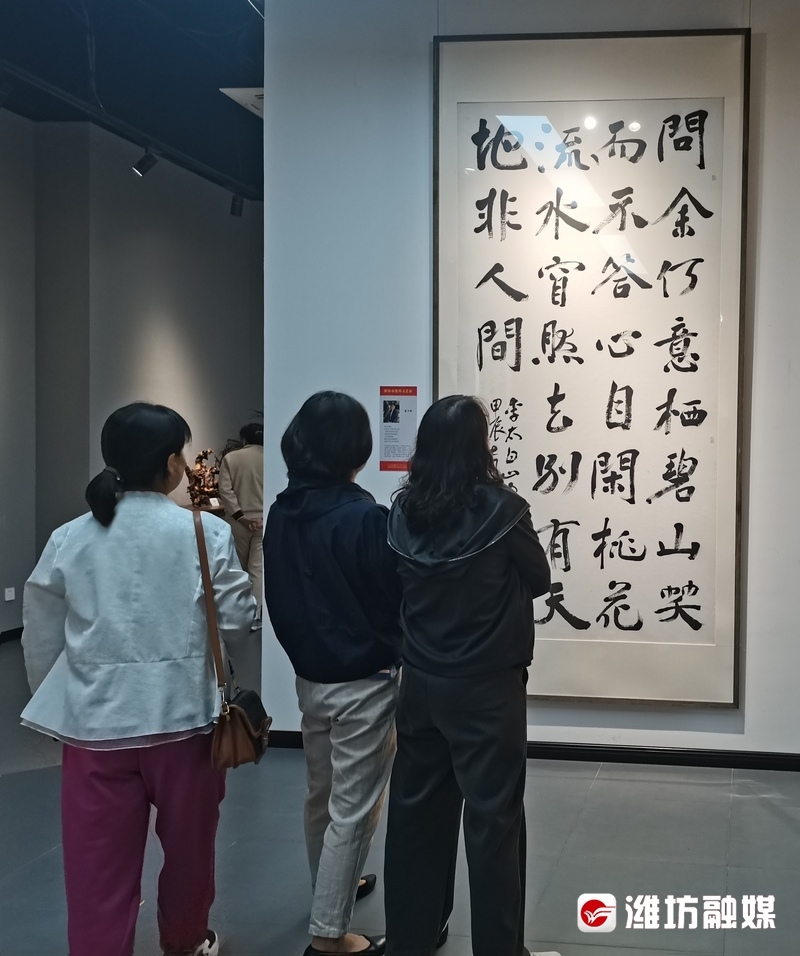 問余何意栖碧山笑
而不答心自閑桃花
流水窅然去別有天
地非人間
李太白山
甲辰
潍坊融媒